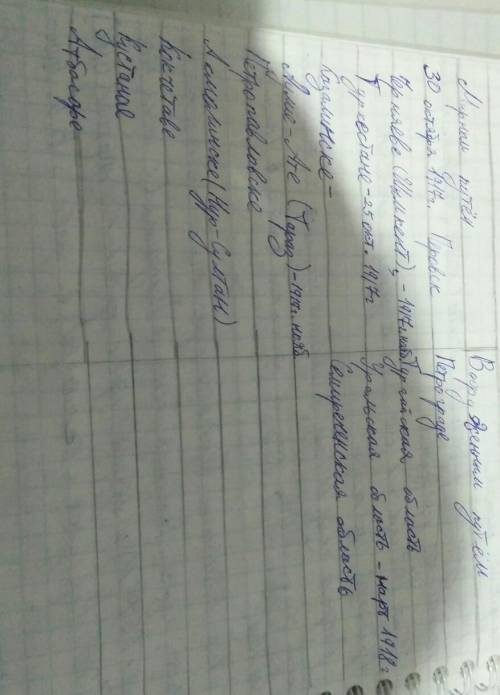 Мирным путём
30 октября 1917г. Перовск
Черняево (Шымкент), - 1917г. нояб
Туркестане - 25 окт. 1917г
Казалинске -
Аулие-Ате (Тараз) - 1917г. нояб
Петропавловске
Акмолинске (Нур-Султан)
Кокчетаве
Кустанае
Атбасаре
Вооруженным путём
Петрограде
Тургайская область
Уральская область - март 1918г
Семиреченская область